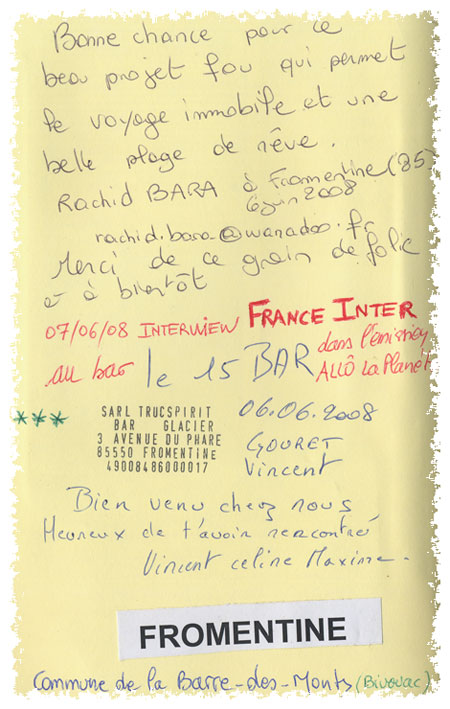 Bonne chance pour ce
beau projet fou qui permet
le voyage immobile et une
belle plage de rêve.
Rachid BARA à Fromentine (85)
6 juin 2008
rachid.bara@wanadoo.fr
Merci de ce grain de folie
et à bientôt
07/06/08 INTERWIEW FRANCE INTER
dans l'émission
au bar le 15 BAR ALLÔ La Planèt
***
SARL TRUCSPIRIT
BAR GLACIER
3 AVENUE DU PHARE
85550 FROMENTINE
49008486000017
06.06.2008
GOURET
Vincent
Bien venu chez nous
Heureux de t'avoir rencontré
Vincent celine Maxime.
FROMENTINE
Commune de la Barre-des-Monts (Bivouac)